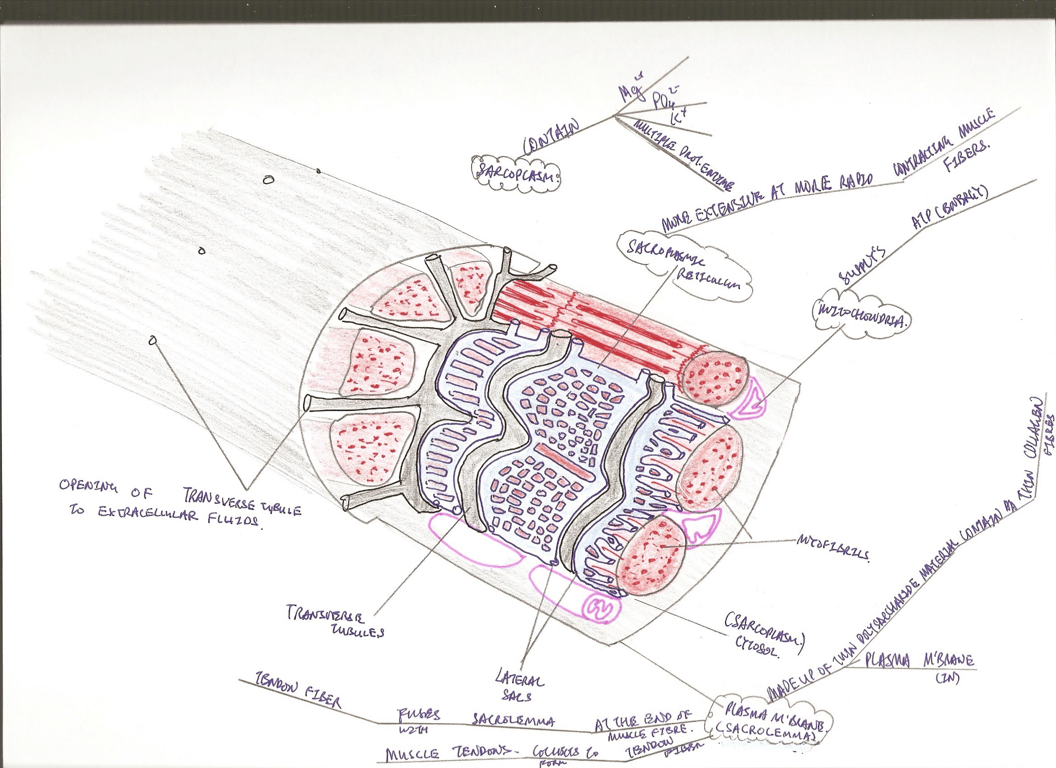 Mg²⁺
PO₄²⁻
K⁺
MULTIPLE PROT. ENZYME
CONTAIN
SARCOPLASM.
MORE EXTENSIVE AT MORE RADID CONTRACTING MUSCLE
FIBERS.
SACROPLASMIC
RETICULUM
ATP (ENERGY)
SUPPLY'S
MITOCHONDRIA.
OPENING OF TRANSVERSE TUBULE
TO EXTRACELLULAR FLUIDS.
MYOFIBRILS.
TRANSVERSE
TUBULES
(SARCOPLASM)
CYTOSOL.
LATERAL
SACS
MADE UP OF THIN POLYSACCHARIDE MATERIAL CONTAIN THIN COLLAGEN
FIBRES
PLASMA M'BRANE
(IN)
PLASMA M'BRANE
(SACROLEMMA)
TENDON FIBER
FUSES SACROLEMMA AT THE END OF
WITH MUSCLE FIBRE.
MUSCLE TENDONS - COLLECTS TO TENDON
FORM FIBER